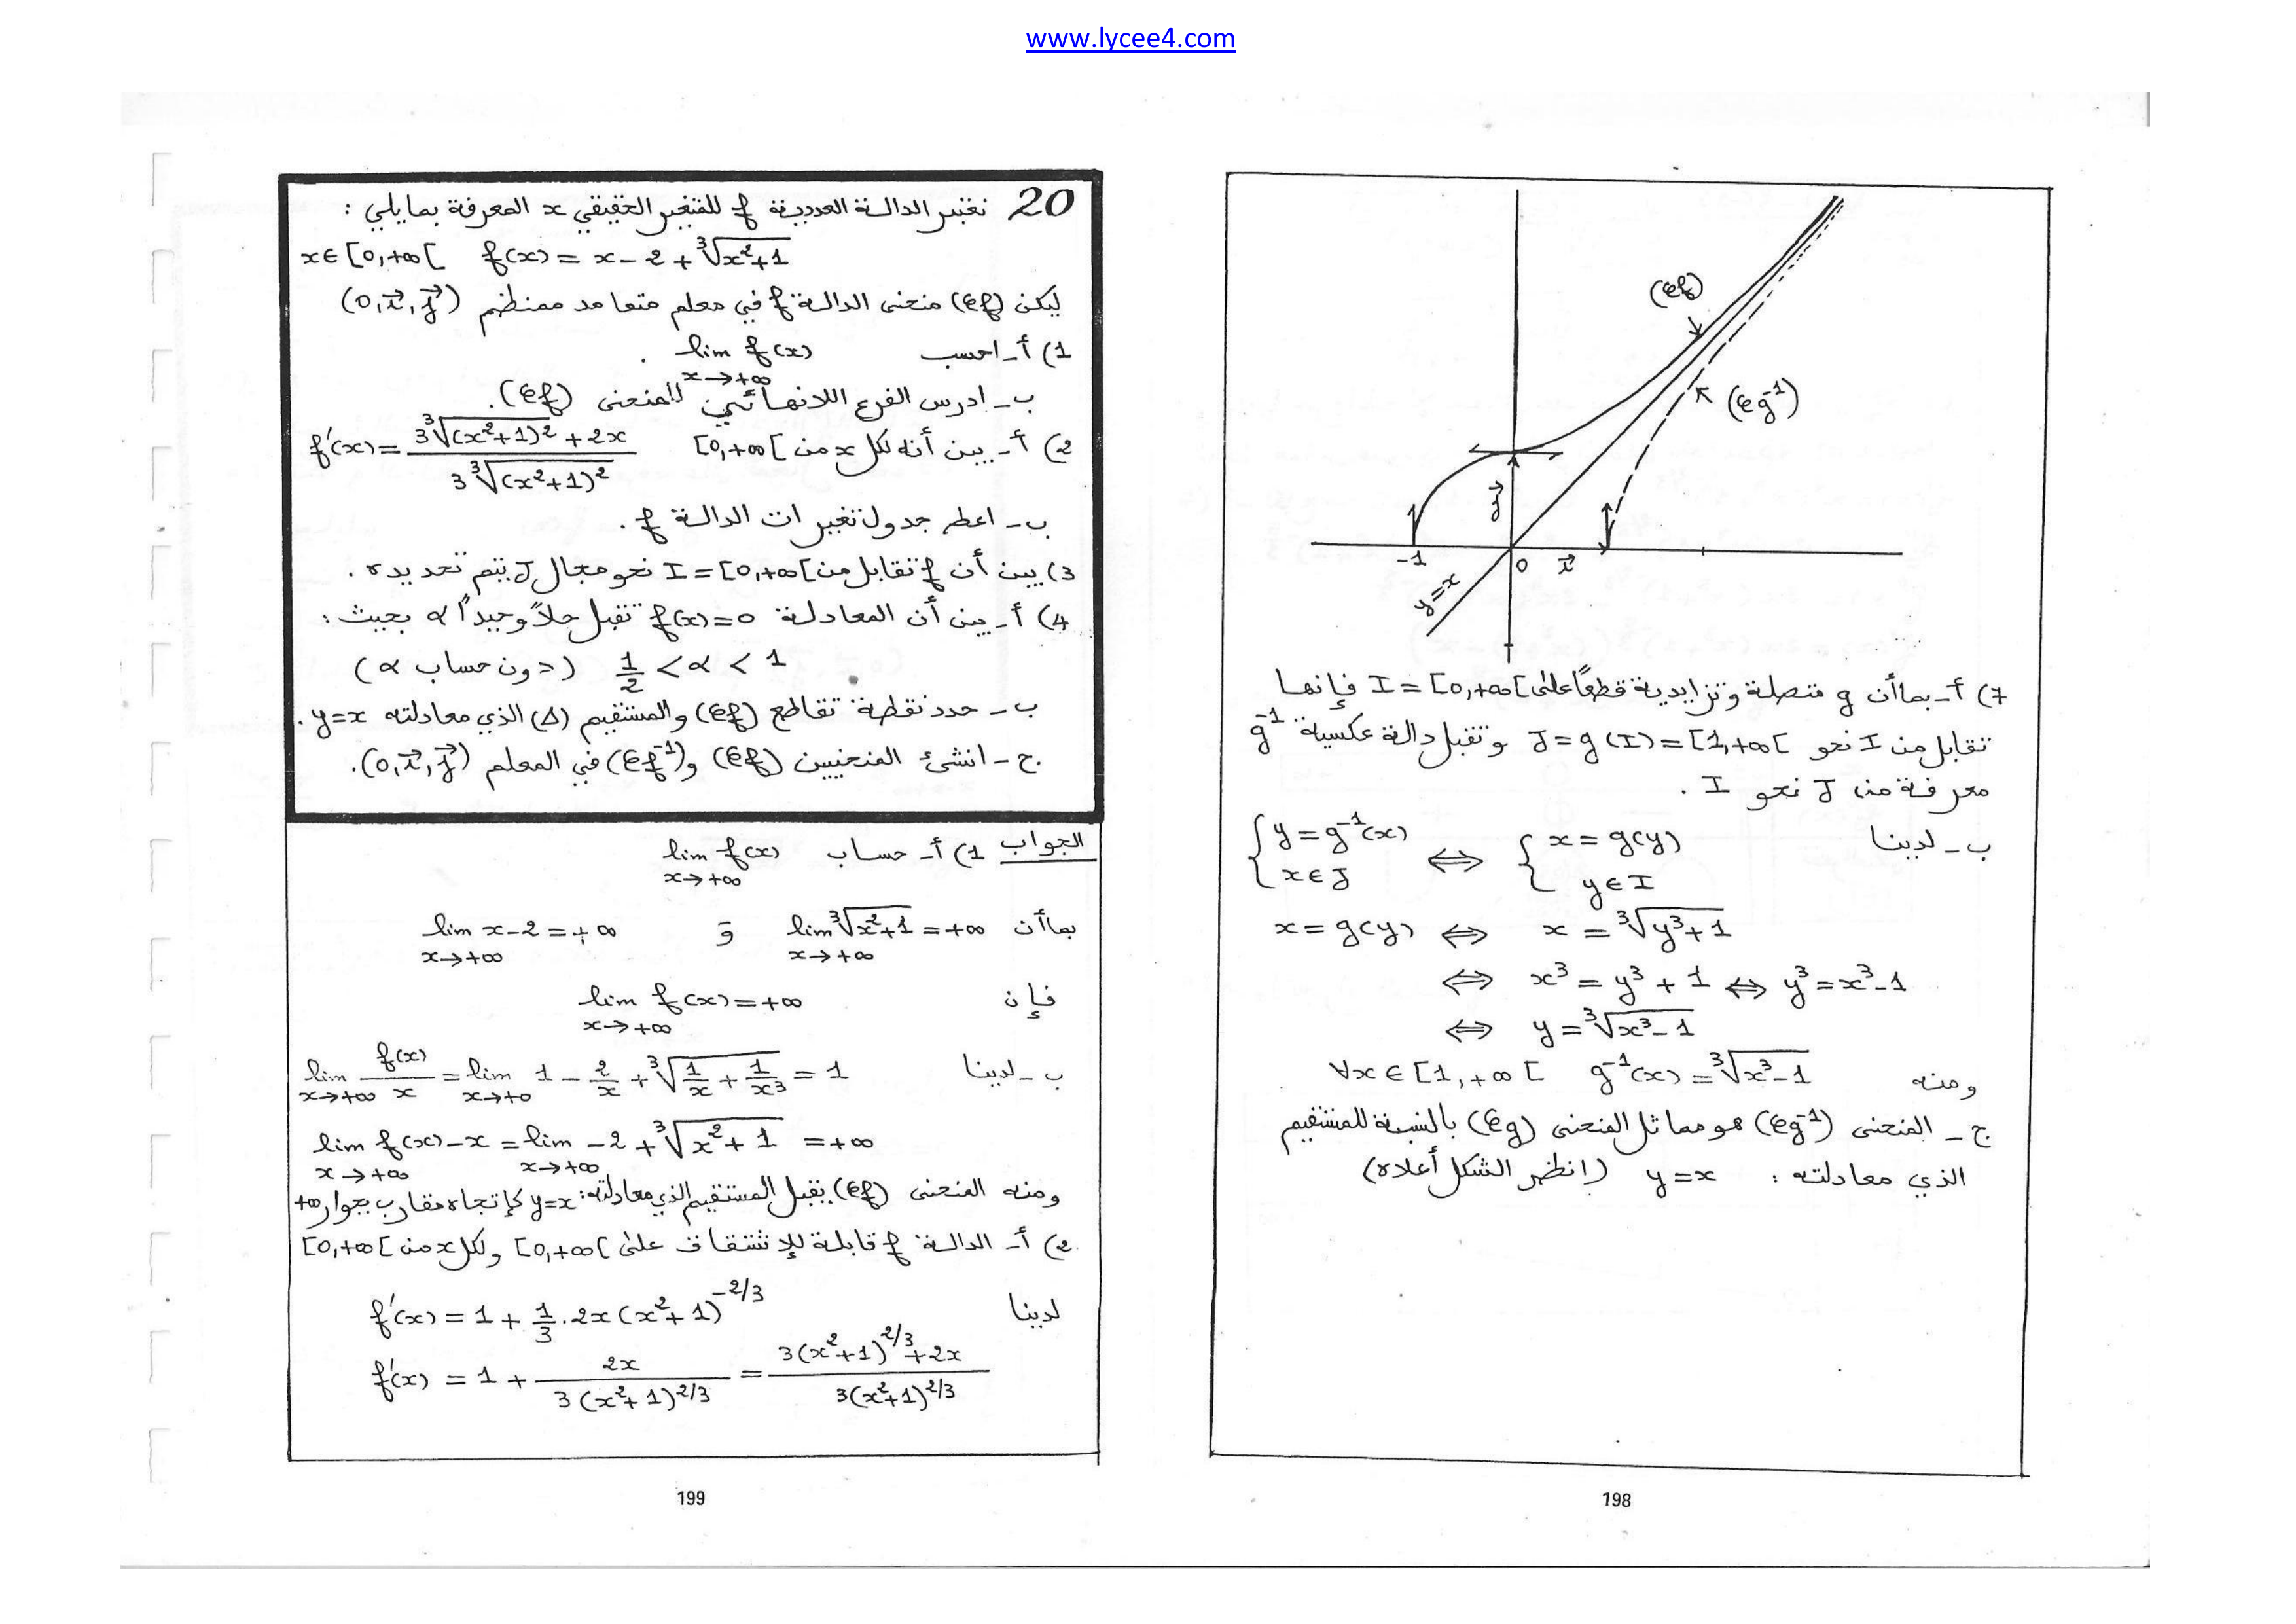 www.lycee4.com
(𝒞f)
(𝒞g⁻¹)
j
-1
0
i
y=x
7) أ- بما أن g متصلة وتزايدية قطعاً على I = [0,+∞[ فإنها
تقابل من I نحو J = g(I) = [1,+∞[ وتقبل دالة عكسية g⁻¹
معرفة من J نحو I .
ب- لدينا { y = g⁻¹(x) , x ∈ J ⟺ { x = g(y) , y ∈ I
x = g(y) ⟺ x = ³√(y³+1)
⟺ x³ = y³ + 1 ⟺ y³ = x³-1
⟺ y = ³√(x³-1)
ومنه ∀x ∈ [1,+∞[ g⁻¹(x) = ³√(x³-1)
ج- المنحنى (𝒞g⁻¹) هو مماثل المنحنى (𝒞g) بالنسبة للمستقيم
الذي معادلته : y = x (انظر الشكل أعلاه)
198
20 نعتبر الدالة العددية f للمتغير الحقيقي x المعرفة بمايلي :
x∈[0,+∞[ f(x) = x-2+³√(x²+1)
ليكن (𝒞f) منحنى الدالة f في معلم متعامد ممنظم (0,i⃗,j⃗)
1) أ- احسب lim f(x) x→+∞ .
ب- ادرس الفرع اللانهائي للمنحنى (𝒞f).
2) أ- بين أنه لكل x من [0,+∞[ f'(x) = (3³√(x²+1)² + 2x) / (3³√(x²+1)²)
ب- اعط جدول تغيرات الدالة f .
3) بين أن f تقابل من I = [0,+∞[ نحو مجال J يتم تحديده .
4) أ- بين أن المعادلة f(x)=0 تقبل حلاً وحيداً α بحيث :
1/2 < α < 1 (دون حساب α)
ب- حدد نقطة تقاطع (𝒞f) والمستقيم (Δ) الذي معادلته y=x .
ج- انشئ المنحنيين (𝒞f) و (𝒞f⁻¹) في المعلم (0,i⃗,j⃗).
الجواب 1) أ- حساب lim f(x) x→+∞
بما أن lim ³√(x²+1) = +∞ x→+∞ و lim x-2 = +∞ x→+∞
فإن lim f(x) = +∞ x→+∞
ب- لدينا lim f(x)/x x→+∞ = lim 1 - 2/x + ³√(1/x + 1/x³) x→+∞ = 1
lim f(x)-x x→+∞ = lim -2+³√(x²+1) x→+∞ = +∞
ومنه المنحنى (𝒞f) يقبل المستقيم الذي معادلته: y=x كإتجاه مقارب بجوار +∞
2) أ- الدالة f قابلة للإشتقاق على [0,+∞[ ولكل x من [0,+∞[
لدينا f'(x) = 1 + 1/3 . 2x(x²+1)^(-2/3)
f'(x) = 1 + 2x / (3(x²+1)^(2/3)) = (3(x²+1)^(2/3) + 2x) / (3(x²+1)^(2/3))
199